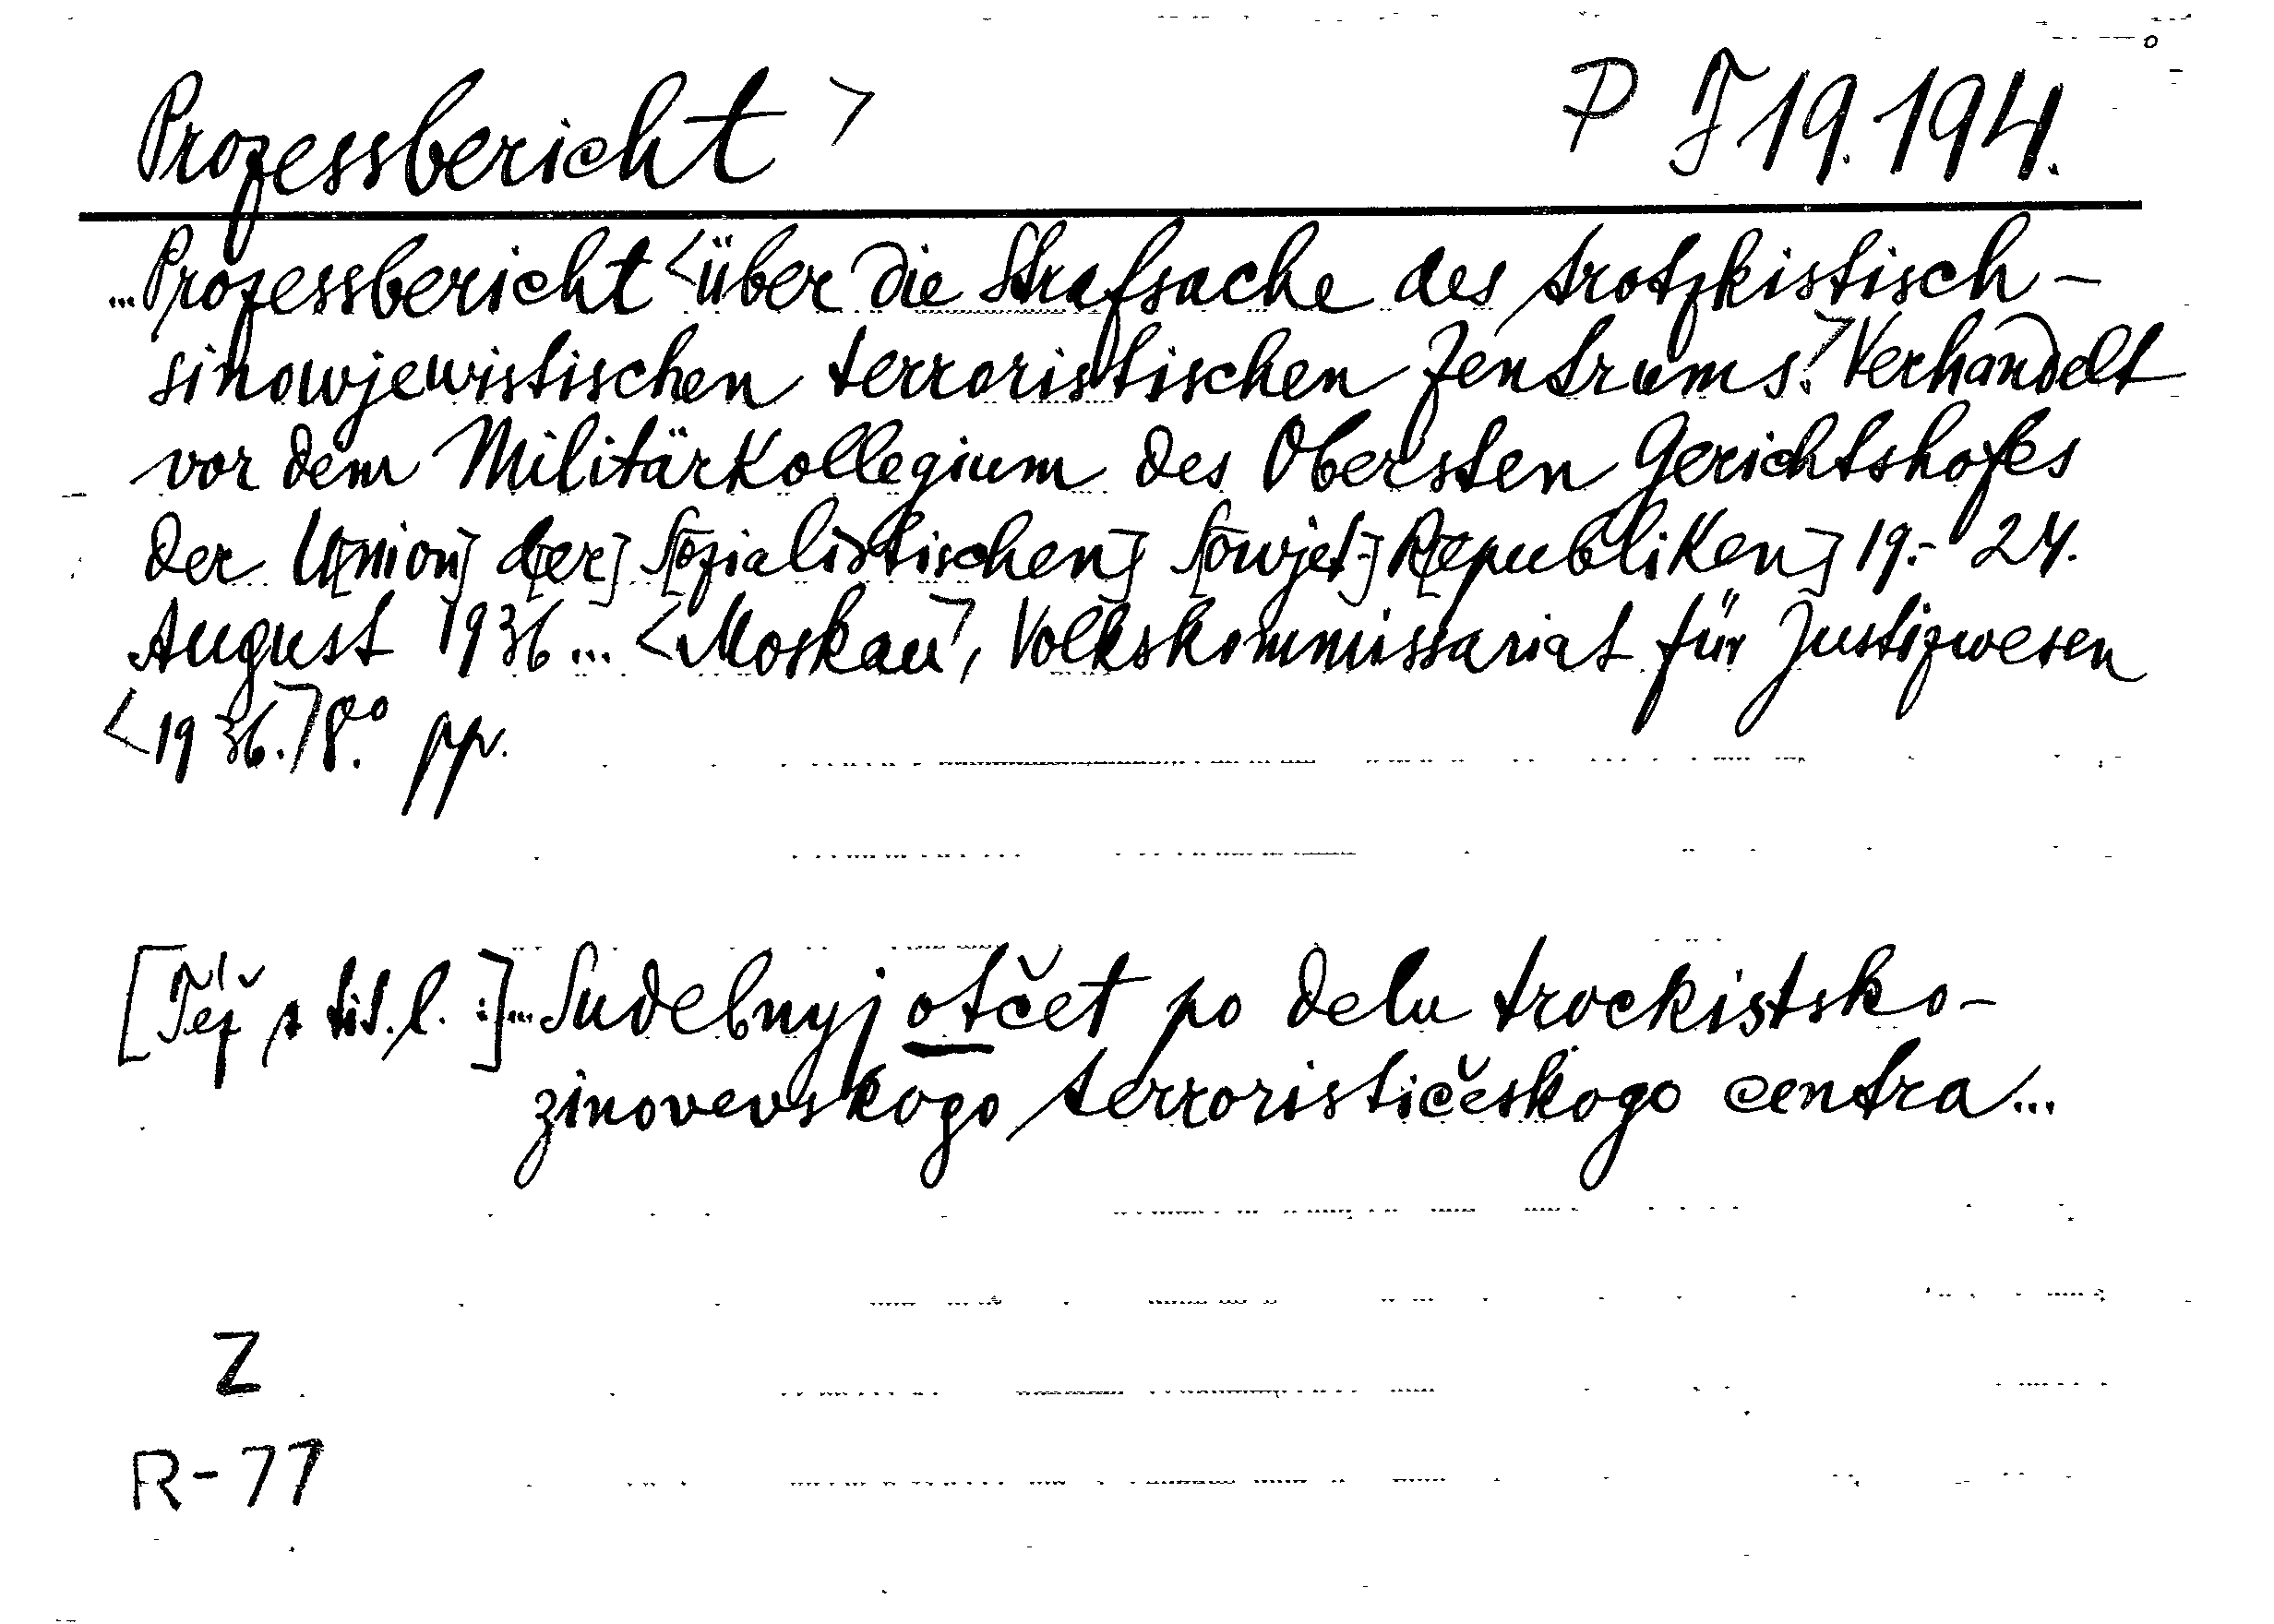 Prozessbericht > P J 19.194.
...Prozessbericht <über die Strafsache des trotzkistisch-
sinowjewistischen terroristischen Zentrums.> Verhandelt
vor dem Militärkollegium des Obersten Gerichtshofes
der U[nion] d[er] S[ozialistischen] S[owjet-] R[epubliken] 19.- 24.
August 1936... <Moskau>, Volkskommissariat für Justizwesen
<1936.> 8.° pp.
[Též s tit. l. :]...Sudebnyj otčet po delu trockistsko-
zinovevskogo terrorističeskogo centra...
Z
R-77